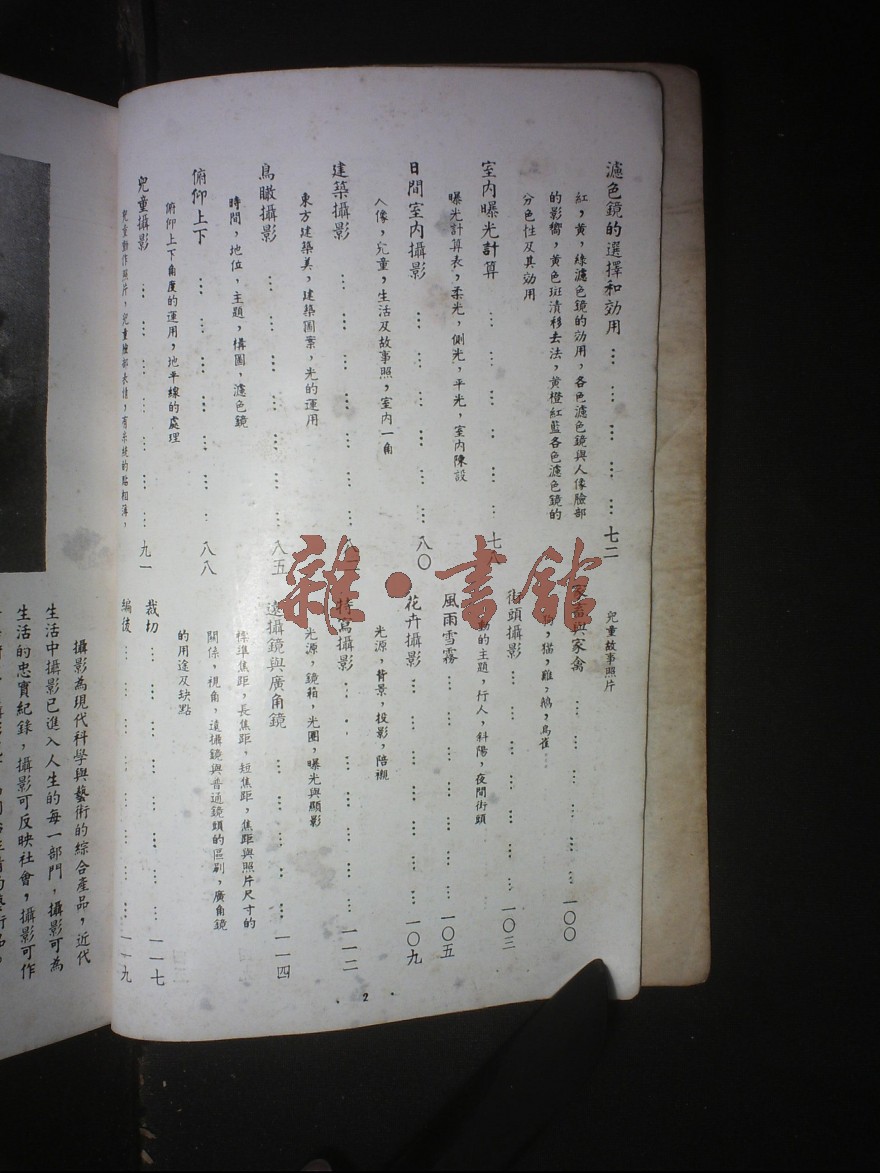 濾色鏡的選擇和効用 … … … … … … 七二
紅，黃，綠濾色鏡的効用，各色濾色鏡與人像臉部
的影響，黃色斑漬移去法，黃橙紅藍各色濾色鏡的
分色性及其効用
室內曝光計算 … … … … … … … 七八
曝光計算表，柔光，側光，平光，室內陳設
日間室內攝影 … … … … … … … 八〇
人像，兒童，生活及故事照，室內一角
建築攝影 … … … … … … … … 八
東方建築美，建築圖案，光的運用
鳥瞰攝影 … … … … … … … … 八五
時間，地位，主題，構圖，濾色鏡
俯仰上下 … … … … … … … … 八八
俯仰上下角度的運用，地平線的處理
兒童攝影 … … … … … … … … 九一
兒童動作照片，兒童臉部表情，有系統的黏相簿，
兒童故事照片
家畜與家禽 … … … … … … … 一〇〇
貓，雞，鵝，鳥雀
街頭攝影 … … … … … … … 一〇三
動的主題，行人，斜陽，夜間街頭
風雨雪霧 … … … … … … … 一〇五
花卉攝影 … … … … … … … 一〇九
光源，背景，投影，陪襯
特寫攝影 … … … … … … … 一一二
光源，鏡箱，光圈，曝光與顯影
遠攝鏡與廣角鏡 … … … … … 一一四
標準焦距，長焦距，短焦距，焦距與照片尺寸的
關係，視角，遠攝鏡與普通鏡頭的區別，廣角鏡
的用途及缺點
裁切 … … … … … … … … 一一七
編後 … … … … … … … … 一一九
· 2 ·
攝影為現代科學與藝術的綜合產品，近代
生活中攝影已進入人生的每一部門，攝影可為
生活的忠實紀錄，攝影可反映社會，攝影可作
雜·書館